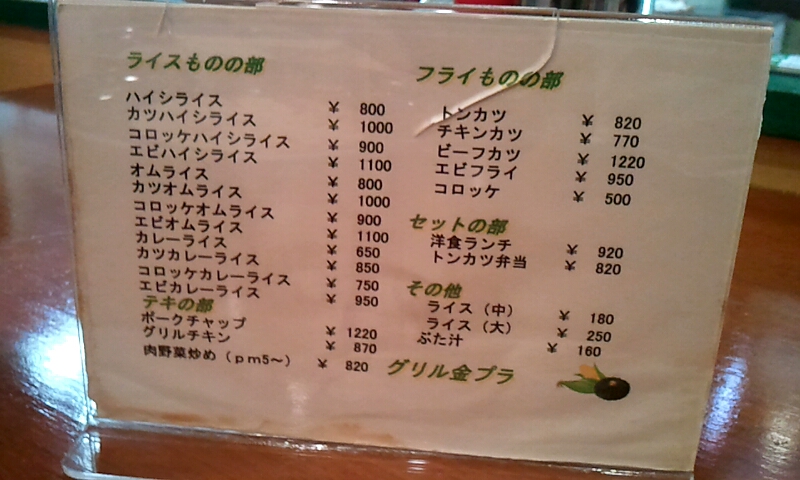 ライスものの部
ハイシライス ¥ 800
カツハイシライス ¥ 1000
コロッケハイシライス ¥ 900
エビハイシライス ¥ 1100
オムライス ¥ 800
カツオムライス ¥ 1000
コロッケオムライス ¥ 900
エビオムライス ¥ 1100
カレーライス ¥ 650
カツカレーライス ¥ 850
コロッケカレーライス ¥ 750
エビカレーライス ¥ 950
テキの部
ポークチャップ ¥ 1220
グリルチキン ¥ 870
肉野菜炒め（pm5～） ¥ 820
フライものの部
トンカツ ¥ 820
チキンカツ ¥ 770
ビーフカツ ¥ 1220
エビフライ ¥ 950
コロッケ ¥ 500
セットの部
洋食ランチ ¥ 920
トンカツ弁当 ¥ 820
その他
ライス（中） ¥ 180
ライス（大） ¥ 250
ぶた汁 ¥ 160
グリル金プラ